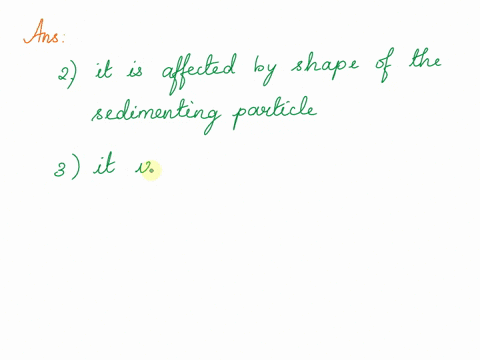 Ans:
2) it is affected by shape of the
sedimenting particle
3) it